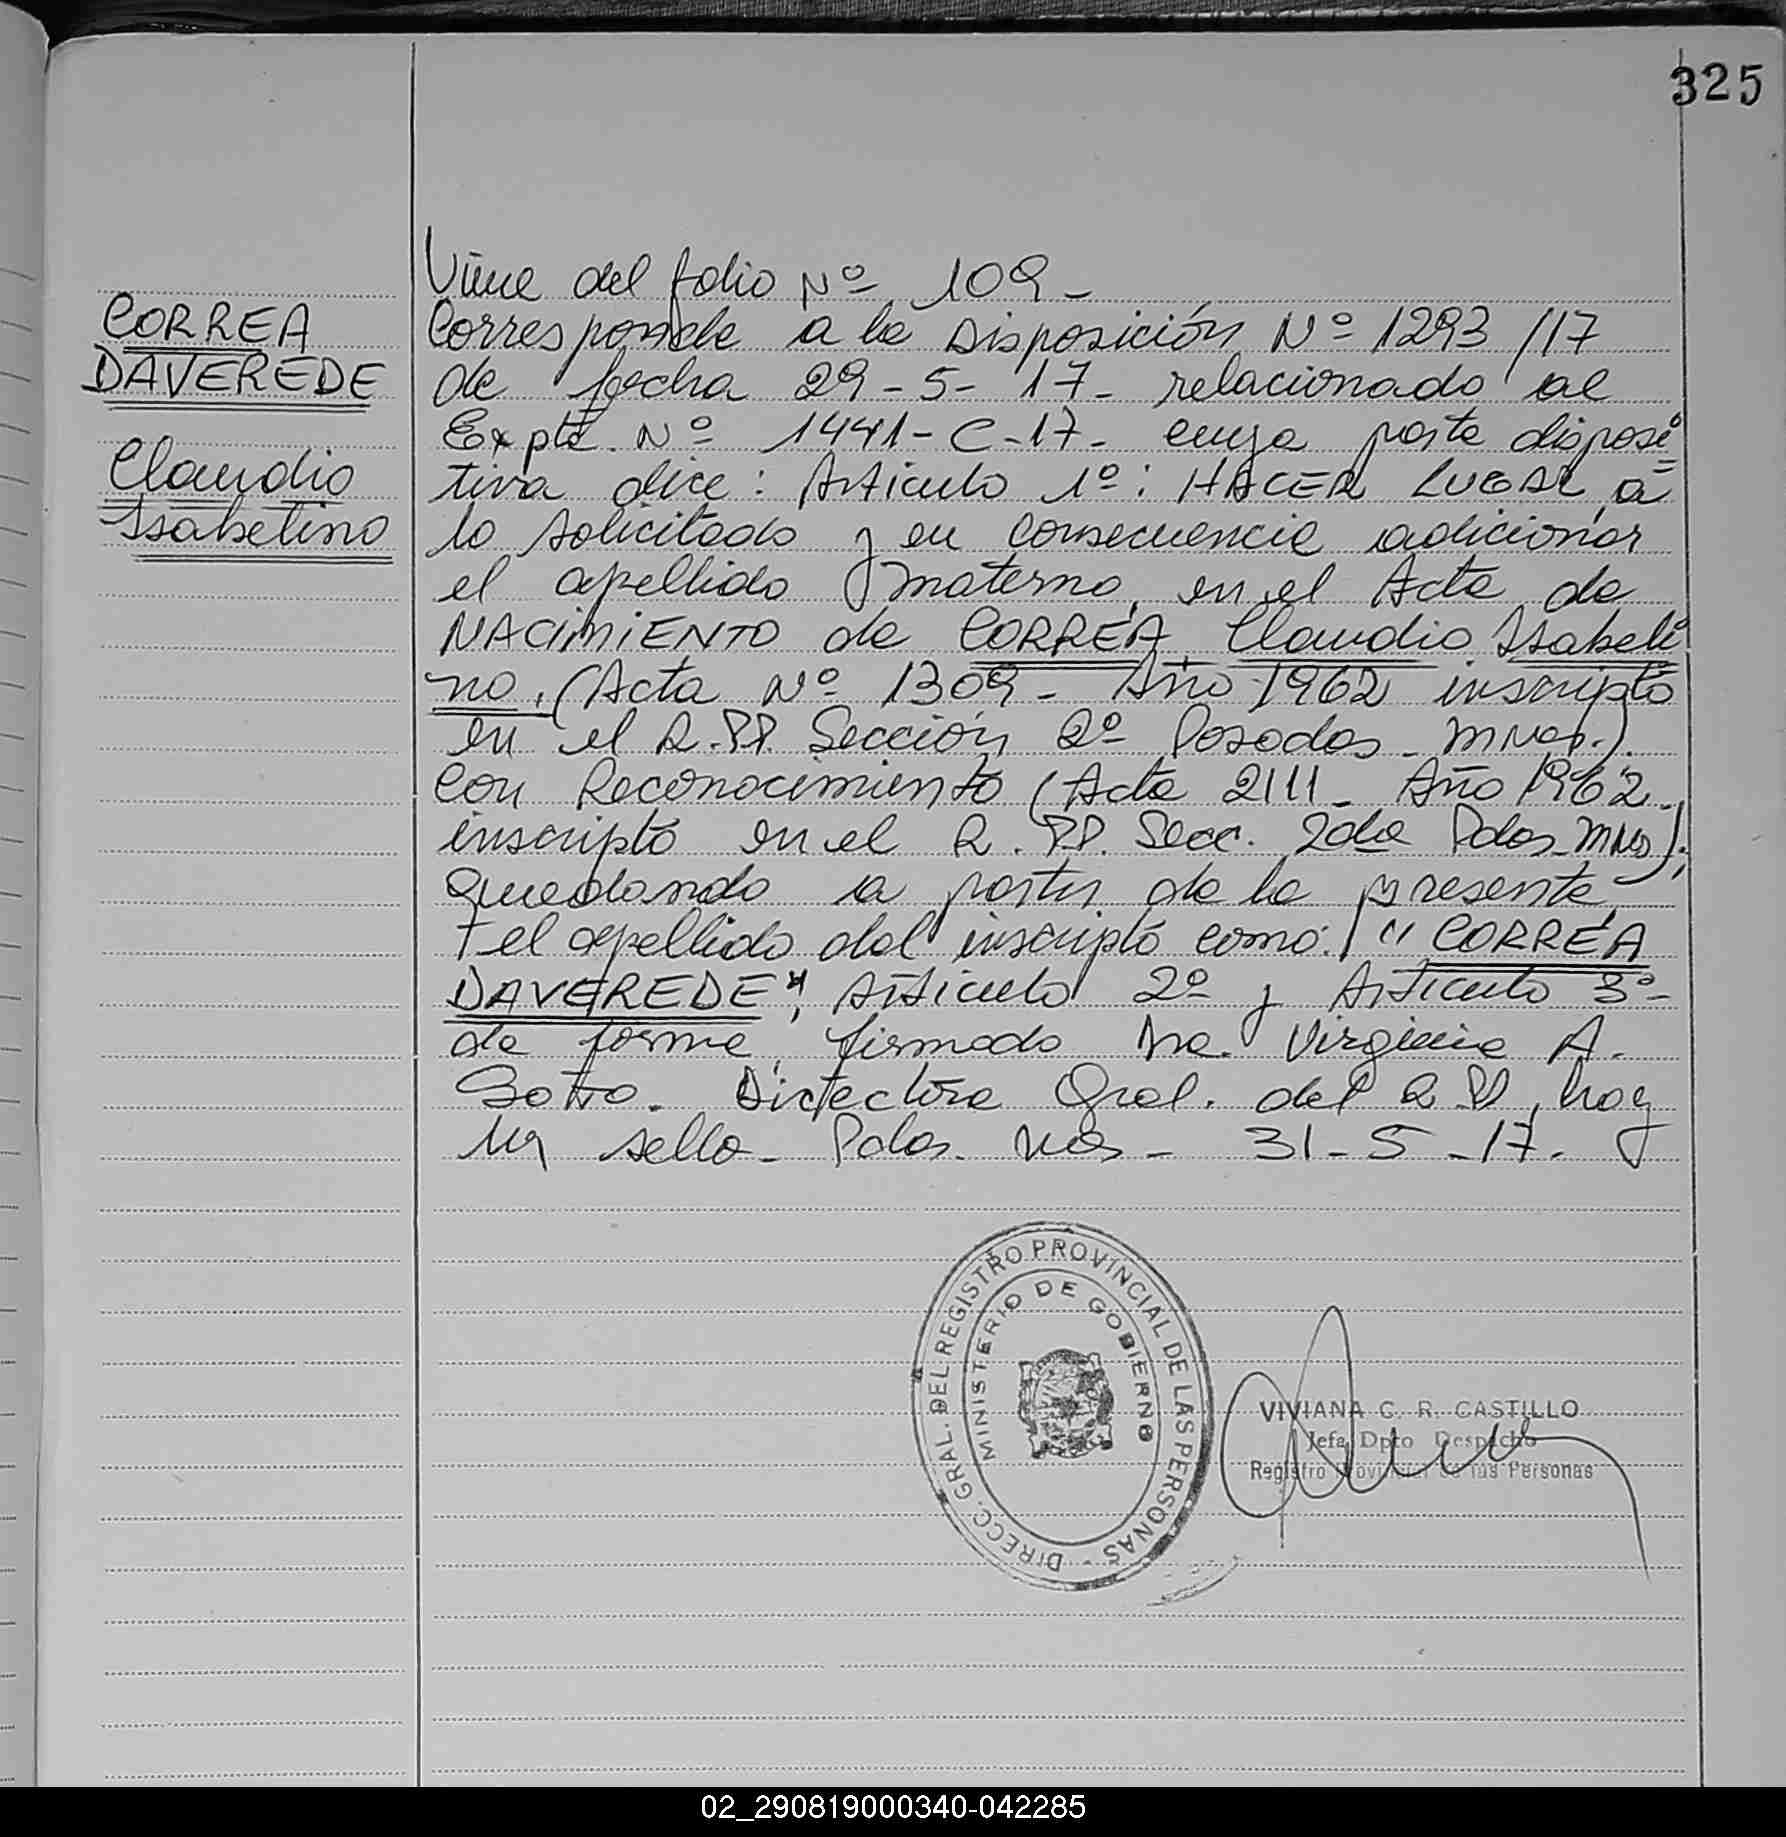 325
CORREA
DAVEREDE
Claudio
Isabelino
Viene del folio Nº 109-
Corresponde a la Disposición Nº 1293/17
de fecha 29-5-17- relacionado al
Expte. Nº 1441-C-17- cuya parte disposi
tiva dice: Artículo 1º: HACER LUGAR a
lo solicitado y en consecuencia adicionar
el apellido materno, en el Acta de
NACIMIENTO de CORREA, Claudio Isabeli
no, (Acta Nº 1309- Año 1962 inscripto
en el R.PP. Sección 2º Posadas- Mnes.).
Con Reconocimiento (Acta 2111- Año 1962-
inscripto en el R.PP. Secc. 2da Pdas-Mnes);
quedando a partir de la presente
el apellido del inscripto como: "CORREA
DAVEREDE", Artículo 2º y Artículo 3º-
de forma, firmado Dra. Virginia A.
Directora Gral. del R.PP, hay
un sello- Pdas. Mnes- 31-5-17-
DIRECC. GRAL. DEL REGISTRO PROVINCIAL DE LAS PERSONAS -
MINISTERIO DE GOBIERNO
VIVIANA C. R. CASTILLO
Jefa Dpto Despacho
Registro Provincial de las Personas
02_290819000340-042285